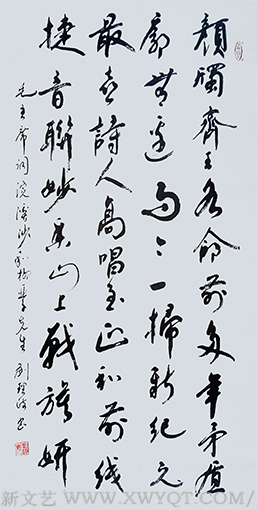 顏斶齊王各命前多年矛盾
廓無邊而今一掃新紀元
最喜詩人高唱至正和前线
捷音聯妙香山上戰旗妍
毛主席詞浣溪沙和柳亞子先生 劉 书
新文艺 (WWW.XWYQT.COM/)